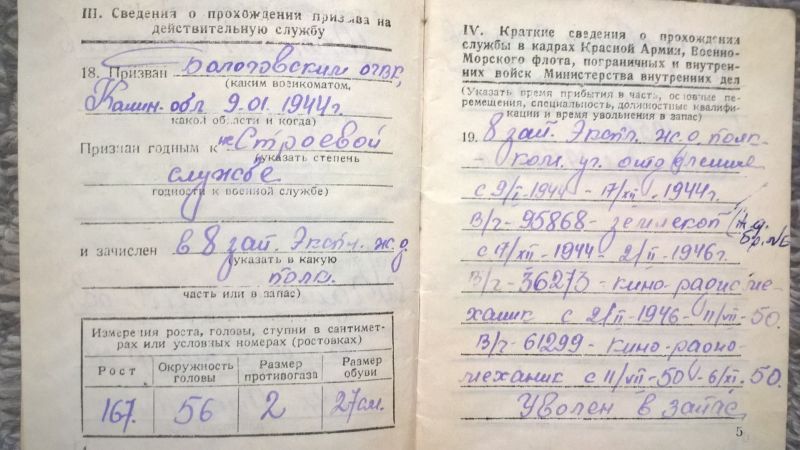 III. Сведения о прохождении призыва на
действительную службу
18. Призван Бологовским ОГВК,
(каким военкоматом,
Калин. обл 9.01.1944г.
какой области и когда)
Признан годным к строевой
(указать степень
службе
годности к военной службе)
и зачислен в 8 зап. Экспл. ж.д
(указать в какую
полк.
часть или в запас)
Измерения роста, головы, ступни в сантимет-
рах или условных номерах (ростовках)
Рост Окружность головы Размер противогаза Размер обуви
167. 56 2 27см.
IV. Краткие сведения о прохождении
службы в кадрах Красной Армии, Военно-
Морского флота, пограничных и внутрен-
них войск Министерства внутренних дел
(Указать время прибытия в часть, основные пе-
ремещения, специальность, должностные квалифи-
кации и время увольнения в запас)
19. 8 зап. Экспл. ж.д. полк
- ком. отделения
с 9/I-1944 - 17/XII-1944г.
В/ч-95868-землекоп
с 17/XII-1944 - 2/II-1946г.
В/ч-36273-кино-радио ме-
ханик с 2/II-1946-11/VII-50.
В/ч-61299-кино-радио-
механик с 11/VII-50-6/XI-50.
Уволен в запас
5